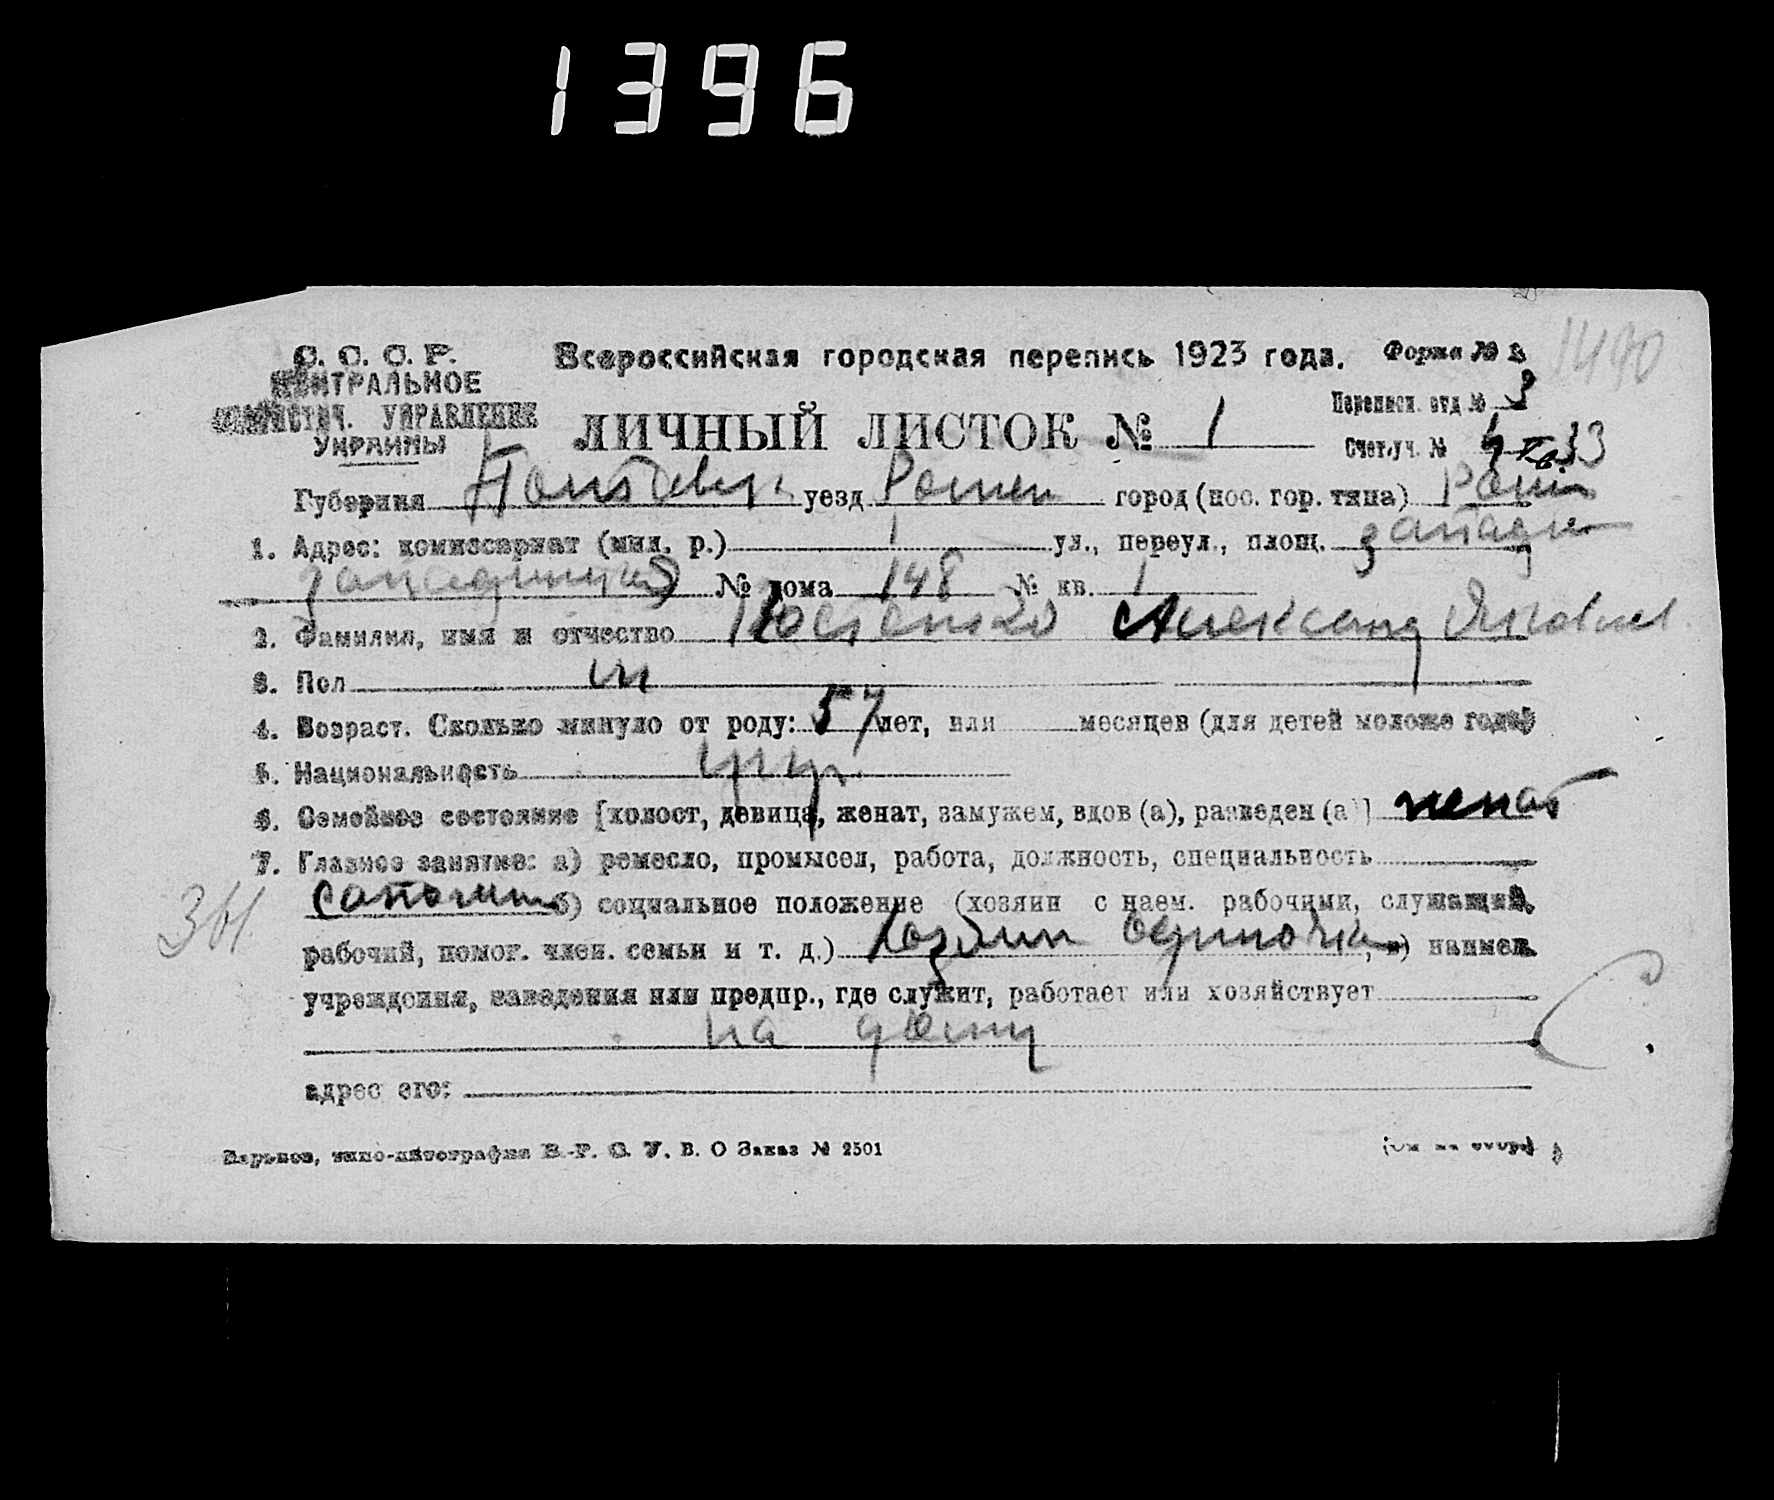 1396
С. С. С. Р.
ЦЕНТРАЛЬНОЕ
СТАТИСТИЧ. УПРАВЛЕНИЕ
УКРАИНЫ
Всероссийская городская перепись 1923 года.
Форма № 3
1490
ЛИЧНЫЙ ЛИСТОК № 1
Переписн. отд № 3
Счет.уч. №
Губерния Полтавск уезд Ромен город (пос. гор. типа) Ромен
1. Адрес: комиссариат (мил. р.) 1 ул., переул., площ.
№ дома 148 № кв. 1
2. Фамилия, имя и отчество Костенко Александ Яковлев
3. Пол м
4. Возраст. Сколько минуло от роду: 57 лет, или месяцев (для детей моложе года)
5. Национальность укр
6. Семейное состояние [холост, девица, женат, замужем, вдов (а), разведен (а)] женат
7. Главное занятие: а) ремесло, промысел, работа, должность, специальность
сапожник б) социальное положение (хозяин с наем. рабочими, служащий,
рабочий, помог. член. семьи и т. д.) хозяин одиночка, в) наимен.
учреждения, заведения или предпр., где служит, работает или хозяйствует
на дому
адрес его:
Харьков, типо-литография В.-Р. С. У. В. О Заказ № 2501